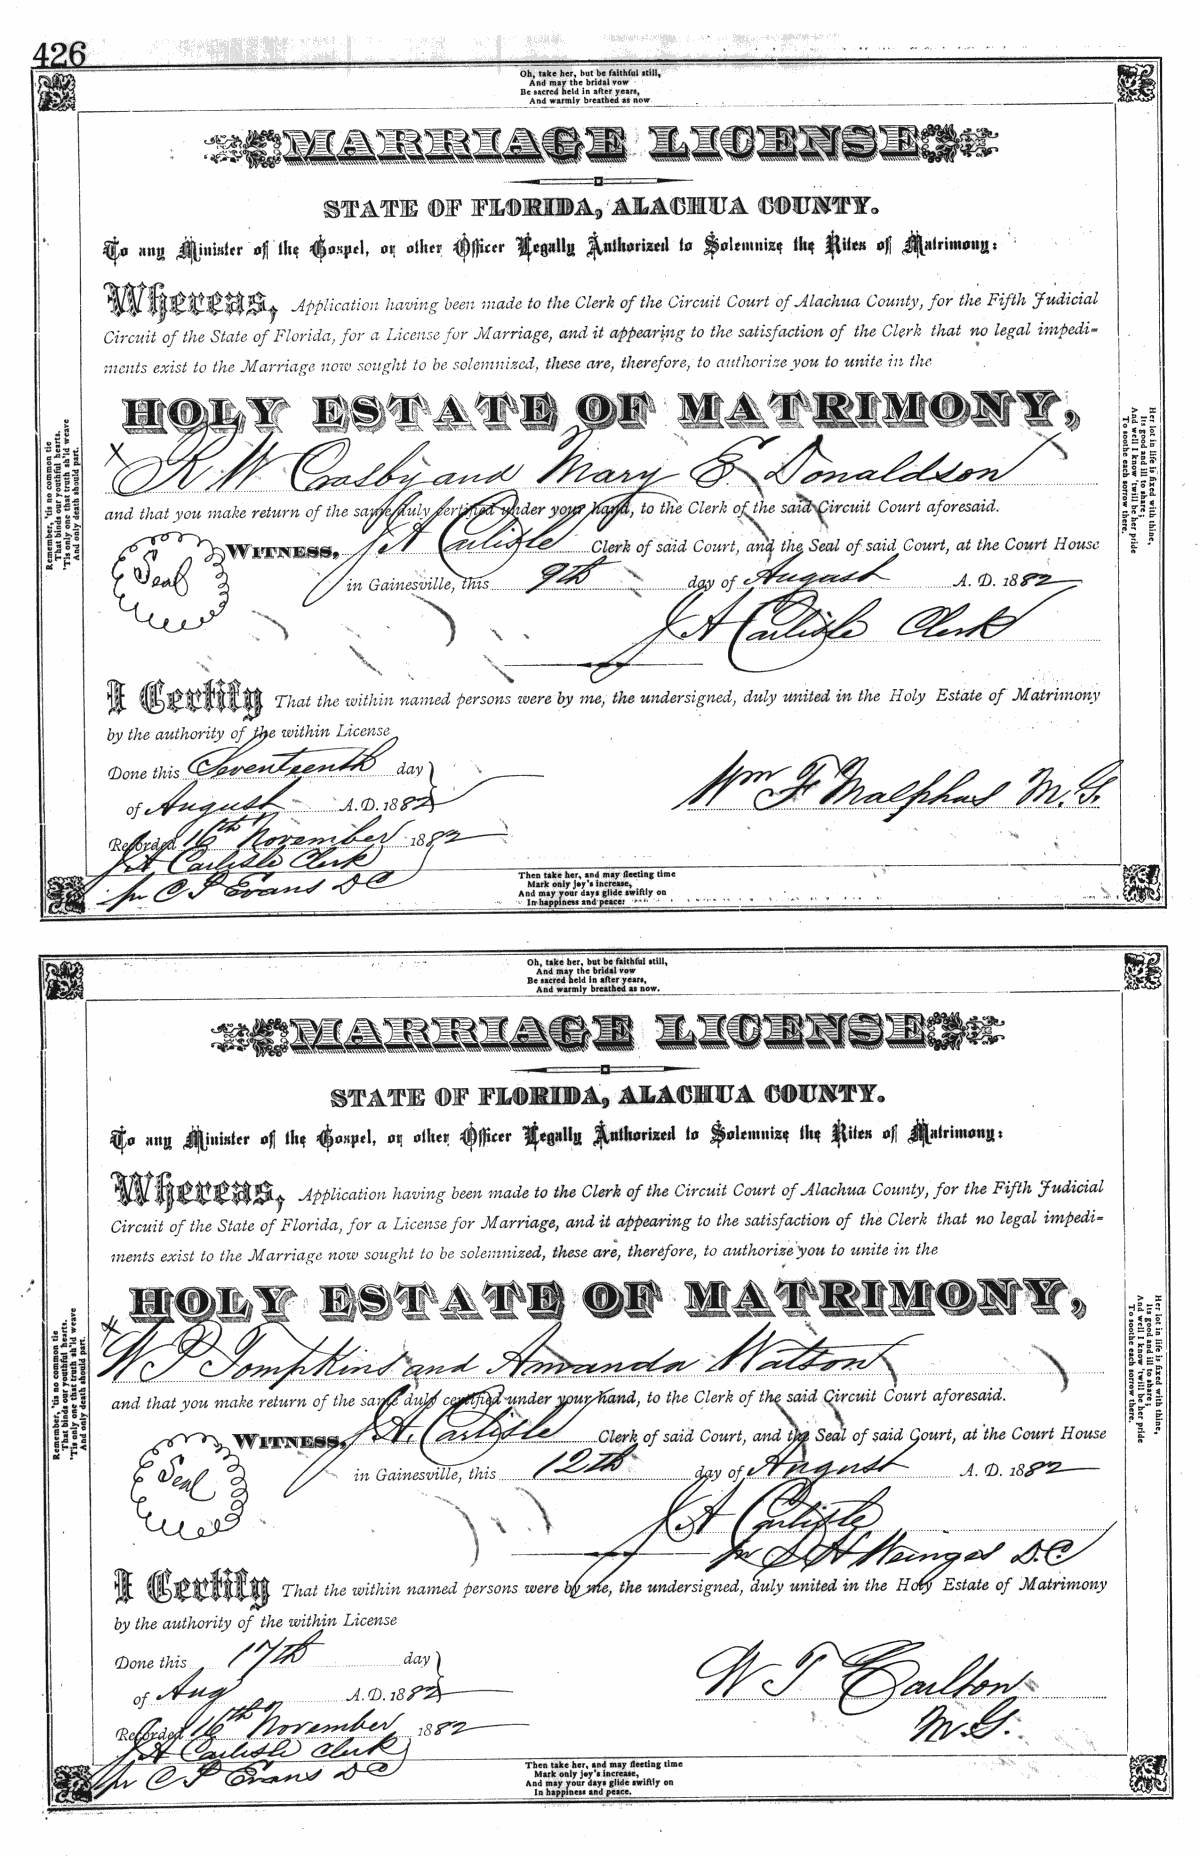 426
Oh, take her, but be faithful still,
And may the bridal vow
Be sacred held in after years,
And warmly breathed as now
MARRIAGE LICENSE
STATE OF FLORIDA, ALACHUA COUNTY.
To any Minister of the Gospel, or other Officer Legally Authorized to Solemnize the Rites of Matrimony:
Whereas, Application having been made to the Clerk of the Circuit Court of Alachua County, for the Fifth Judicial
Circuit of the State of Florida, for a License for Marriage, and it appearing to the satisfaction of the Clerk that no legal impedi-
ments exist to the Marriage now sought to be solemnized, these are, therefore, to authorize you to unite in the
HOLY ESTATE OF MATRIMONY,
x R W Crosby and Mary E Donaldson
and that you make return of the same duly certified under your hand, to the Clerk of the said Circuit Court aforesaid.
WITNESS, J A Carlisle Clerk of said Court, and the Seal of said Court, at the Court House
Seal
in Gainesville, this 9th day of August A. D. 1882
J A Carlisle Clerk
I Certify That the within named persons were by me, the undersigned, duly united in the Holy Estate of Matrimony
by the authority of the within License
Done this Seventeenth day
of August A.D. 1882
Wm F Malphas M. G.
Recorded 16th November 1882
J A Carlisle Clerk
pr C P Evans D C
Remember, 'tis no common tie
That binds our youthful hearts.
'Tis only one that truth sh'ld weave
And only death should part.
Her lot in life is fixed with thine,
Its good and ill to share;
And well I know 'twill be her pride
To soothe each sorrow there.
Then take her, and may fleeting time
Mark only joy's increase,
And may your days glide swiftly on
In happiness and peace.
Oh, take her, but be faithful still,
And may the bridal vow
Be sacred held in after years,
And warmly breathed as now.
MARRIAGE LICENSE
STATE OF FLORIDA, ALACHUA COUNTY.
To any Minister of the Gospel, or other Officer Legally Authorized to Solemnize the Rites of Matrimony:
Whereas, Application having been made to the Clerk of the Circuit Court of Alachua County, for the Fifth Judicial
Circuit of the State of Florida, for a License for Marriage, and it appearing to the satisfaction of the Clerk that no legal impedi-
ments exist to the Marriage now sought to be solemnized, these are, therefore, to authorize you to unite in the
HOLY ESTATE OF MATRIMONY,
x W P Tompkins and Amanda Watson
and that you make return of the same duly certified under your hand, to the Clerk of the said Circuit Court aforesaid.
WITNESS, J. A. Carlisle Clerk of said Court, and the Seal of said Court, at the Court House
Seal
in Gainesville, this 12th day of August A. D. 1882
J A Carlisle
pr S H Weinges D.C.
I Certify That the within named persons were by me, the undersigned, duly united in the Holy Estate of Matrimony
by the authority of the within License
Done this 17th day
of Aug A.D. 1882
W T Carlton
M. G.
Recorded 16th November 1882
J A Carlisle Clerk
pr C P Evans D C
Remember, 'tis no common tie
That binds our youthful hearts.
'Tis only one that truth sh'ld weave
And only death should part.
Her lot in life is fixed with thine,
Its good and ill to share;
And well I know 'twill be her pride
To soothe each sorrow there.
Then take her, and may fleeting time
Mark only joy's increase,
And may your days glide swiftly on
In happiness and peace.